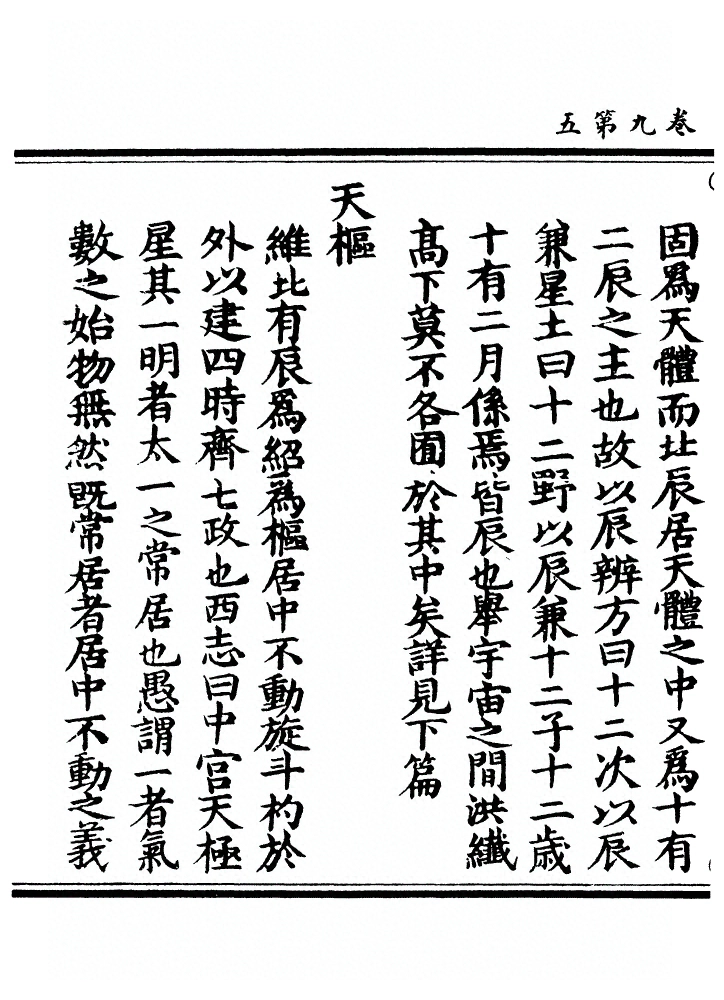 卷九第五
固爲天體而北辰居天體之中又爲十有
二辰之主也故以辰辨方曰十二次以辰
兼星土曰十二野以辰兼十二子十二歲
十有二月係焉皆辰也舉宇宙之間洪纖
高下莫不各囿於其中矣詳見下篇
天樞
維北有辰爲紹爲樞居中不動旋斗杓於
外以建四時齊七政也西志曰中宮天極
星其一明者太一之常居也愚謂一者氣
數之始物無然旣常居者居中不動之義